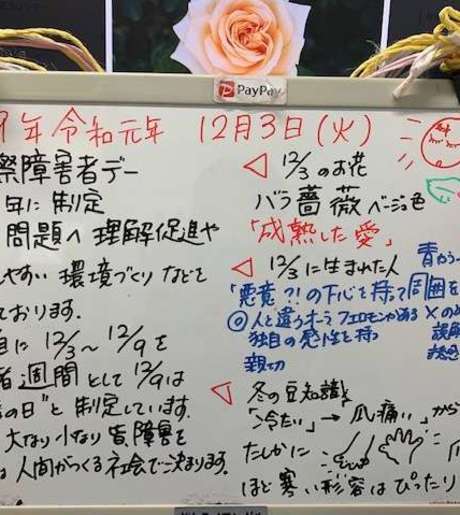 PayPay
9年 令和元年 12月3日(火)
際障害者デー
年に 制定
問題へ 理解促進や
しやすい 環境づくり などを
ております.
12/3~12/9 を
者週間 として 12/9は
の日" と 制定しています.
大なり 小なり 皆 障害を
は 人間がつくる 社会で 決まります.
12/3 のお花
バラ 薔薇 ベージュ色
「成熟した愛」
12/3に生まれた人
「悪意?!の下心を持って周囲を
◎ 人と違うオーラ フェロモンがある
独自の感性を持つ
親切
冬の豆知識
「冷たい」→ 爪痛い から
たしかに
ほど 寒い 形容は ぴったり